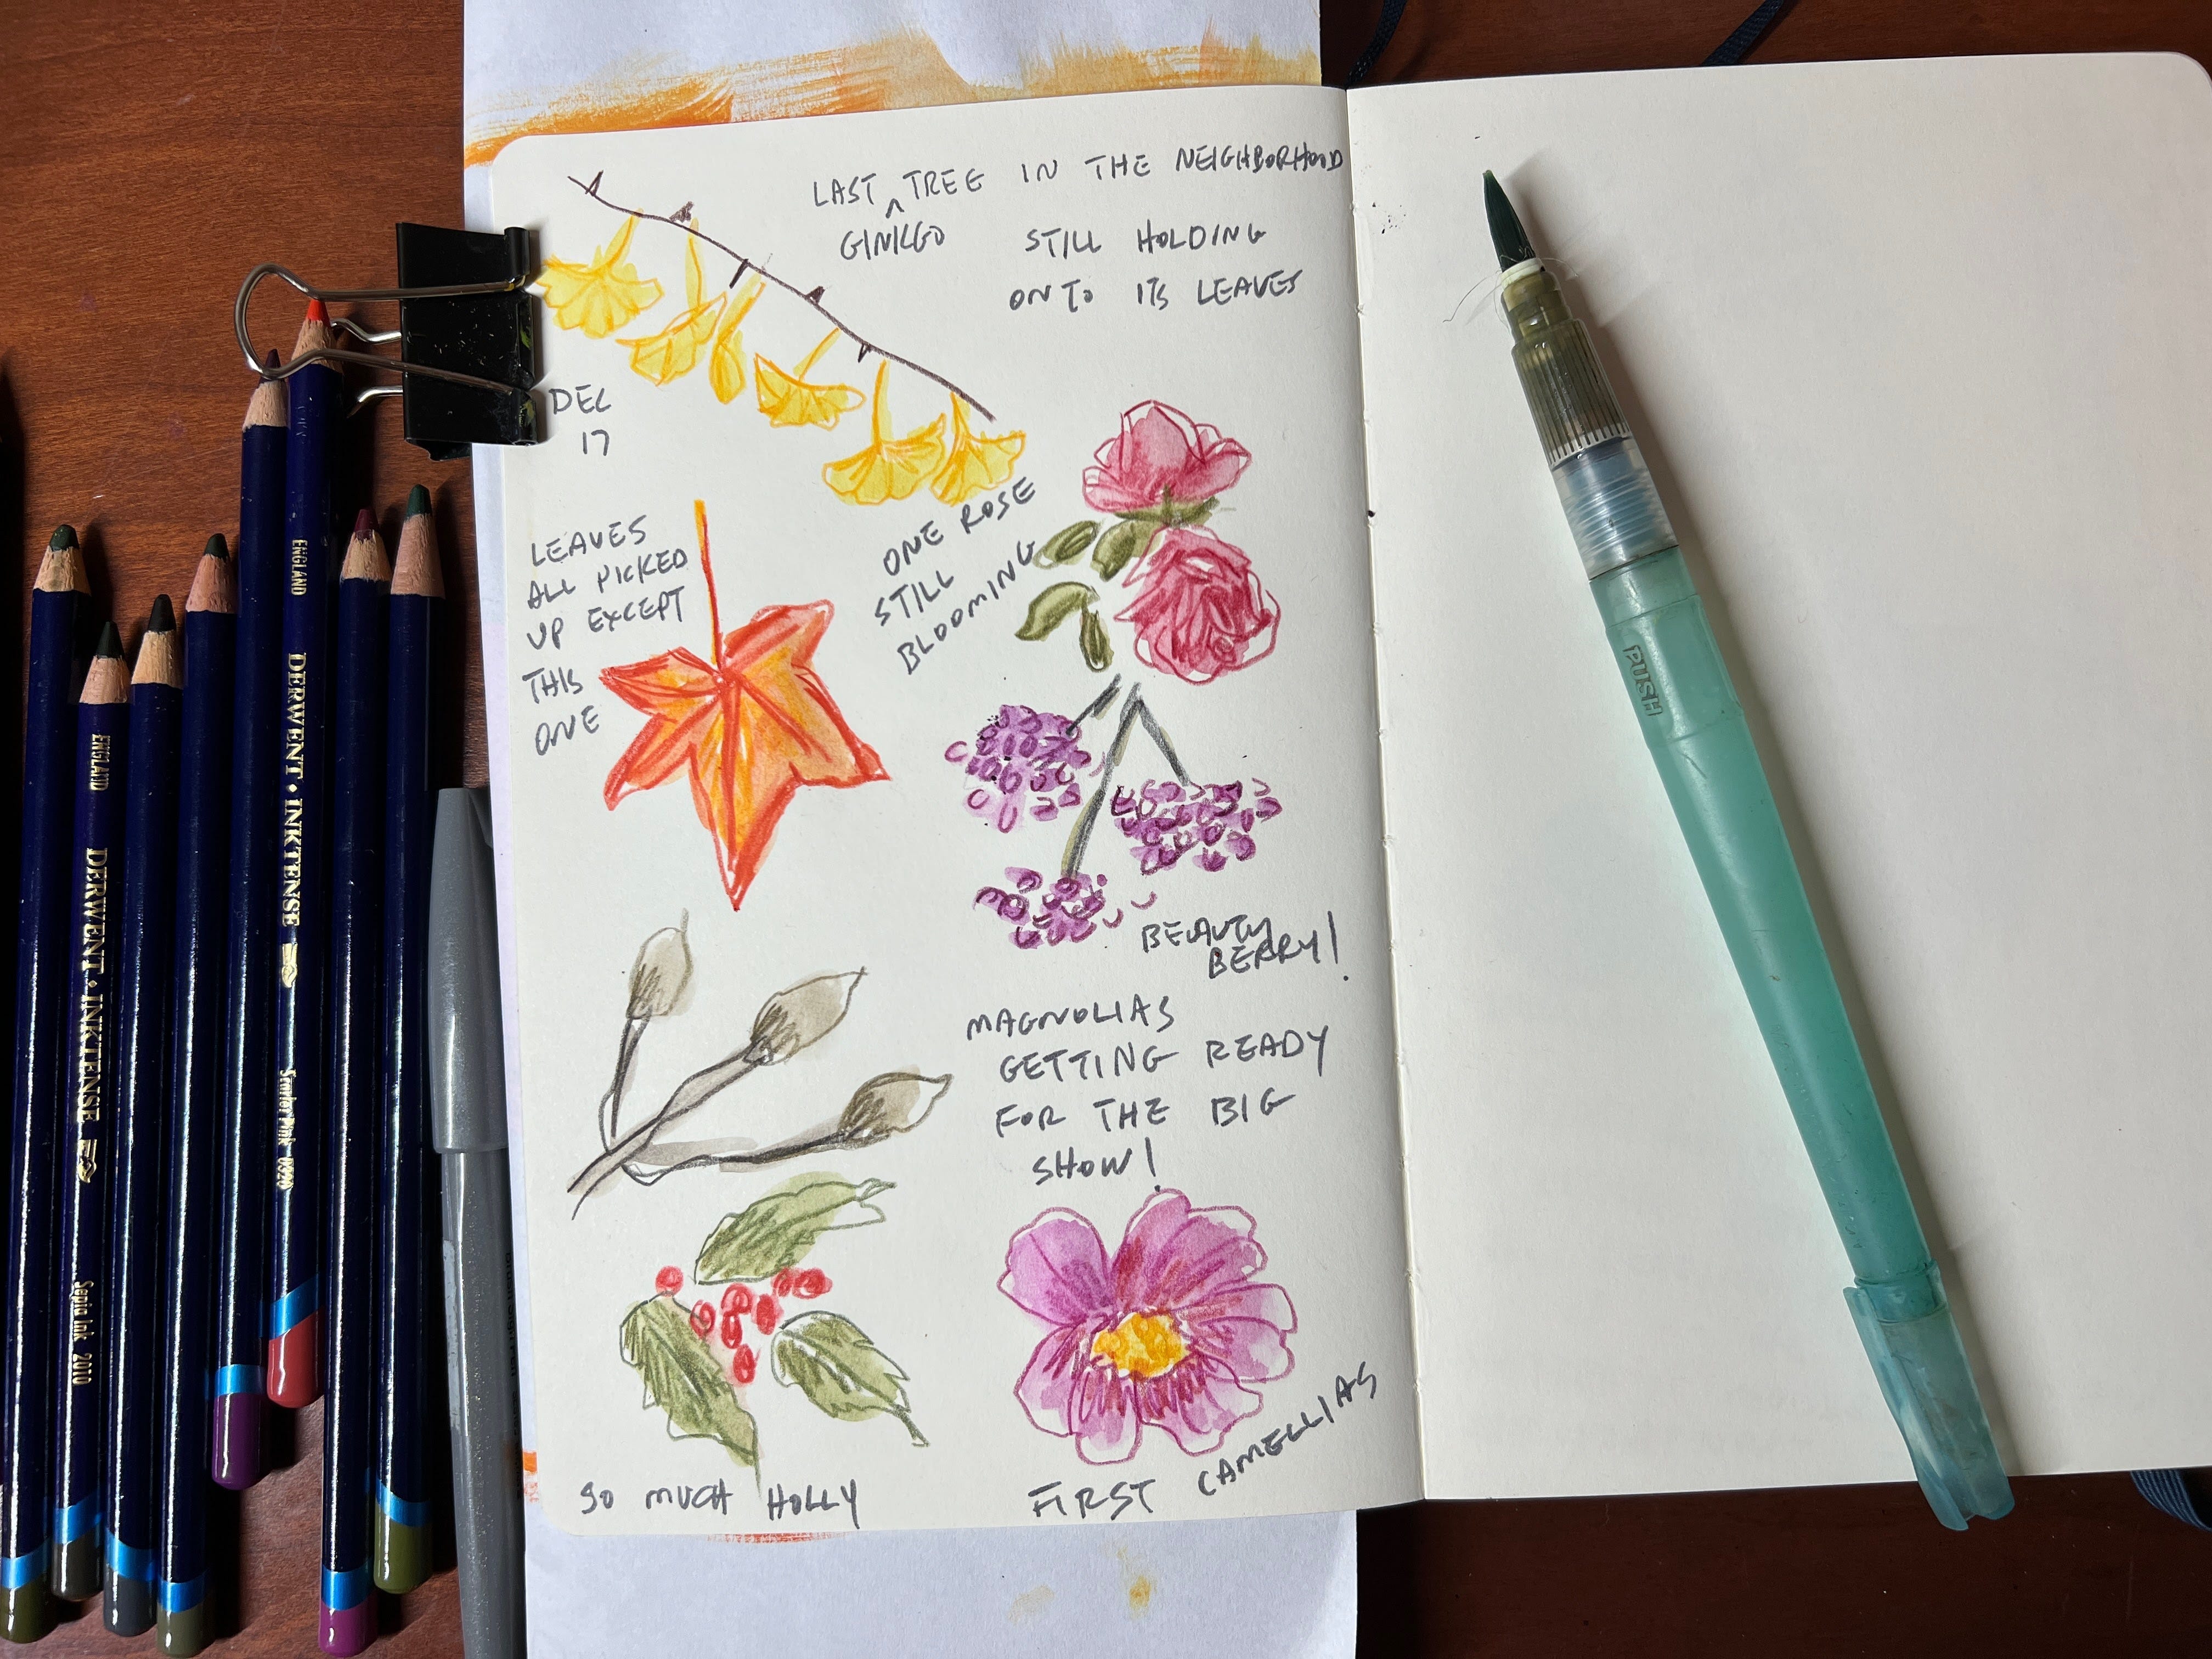 LAST ^ TREE IN THE NEIGHBORHOOD
GINKGO STILL HOLDING
ONTO ITS LEAVES
DEC
17
LEAVES
ALL PICKED
UP EXCEPT
THIS
ONE
ONE ROSE
STILL
BLOOMING
BEAUTY
BERRY!
MAGNOLIAS
GETTING READY
FOR THE BIG
SHOW!
SO MUCH HOLLY
FIRST CAMELLIAS
PUSH
ENGLAND
DERWENT • INKTENSE
Sepia Ink 2010
ENGLAND
DERWENT • INKTENSE
0320